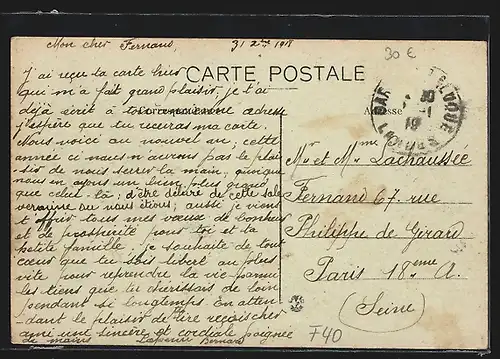 Mon cher Fernand, 31 Xbre 1918
30 €
J'ai reçu ta carte hier
CARTE POSTALE
qui m'a fait grand plaisir, je t'ai
déjà écrit à ton ancienne adresse
Correspondance
Adresse
j'espère que tu recevras ma carte.
Nous voici au nouvel an; cette
année ci nous n'aurons pas le plai-
sir de nous serrer la main, quoique
nous en ayons un bien plus grand
que celui là; d'être délivré de cette sale
vermine où nous étions; aussi je viens
t'offrir tous mes vœux de bonheur
et de prospérité pour toi et ta
petite famille. Je souhaite de tout
cœur que tu sois libéré au plus
vite pour reprendre la vie parmi
les tiens que tu chérissais de loin
pendant si longtemps. En atten-
dant le plaisir de te lire reçois cher
ami une sincère et cordiale poignée
de mains Bernard
Mr et Mme Lachaussée
Fernand 67, rue
Philippe de Girard
Paris 18ème A.
(Seine)
F40